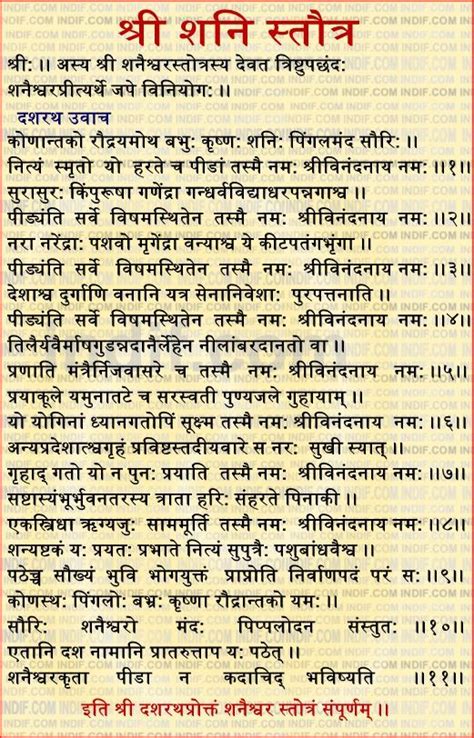 श्री शनि स्तौत्र
श्री: ।। अस्य श्री शनैश्वरस्तोत्रस्य देवत त्रिष्टुपर्छंद:
शनैश्वरप्रीत्यर्थे जपे विनियोग: ।।
दशरथ उवाच
कोणान्तको रौद्रयमोथ बभु: कृष्ण: शनि: पिंगलमंद सौरि: ।।
नित्यं स्मृतो यो हरते च पीडां तस्मै नम: श्रीविनंदनाय नम:।।१।।
सुरासुर: किंपुरूषा गणेंद्रा गन्धर्वविद्याधरपन्नगाश्व ।।
पीड्यंति सर्वे विषमस्थितेन तस्मै नम: श्रीविनंदनाय नम:।।२।।
नरा नरेंद्रा: पशवो मृगेंद्रा वन्याश्व ये कीटपतंगभृंगा ।।
पीड्यंति सर्वे विषमस्थितेन तस्मै नम: श्रीविनंदनाय नम:।।३।।
देशाश्व दुर्गाणि वनानि यत्र सेनानिवेशा: पुरपत्तनाति ।।
पीड्यंति सर्वे विषमस्थितेन तस्मै नम: श्रीविनंदनाय नम:।।४।।
तिलैर्यवैर्माषगुडन्नदानैर्लेहेन नीलांबरदानतो वा ।।
प्रणाति मंत्रैर्निजवासरे च तस्मै नम: श्रीविनंदनाय नम:।।५।।
प्रयाकूले यमुनातटे च सरस्वती पुण्यजले गुहायाम् ।।
यो योगिनां ध्यानगतोपिं सूक्ष्म तस्मै नम: श्रीविनंदनाय नम:।।६।।
अन्यप्रदेशात्श्वगृहं प्रविष्टस्तदीयवारे स नर: सुखी स्यात् ।।
गृहाद् गतो यो न पुन: प्रयाति तस्मै नम: श्रीविनंदनाय नम:।।७।।
सष्टास्यंभूर्भुवनतरस्य त्राता हरि: संहरते पिनाकी ।।
एकस्त्रिधा ऋग्यजु: साममूर्ति तस्मै नम: श्रीविनंदनाय नम:।।८।।
शन्यष्टकं य: प्रयत: प्रभाते नित्यं सुपुत्रै: पशुबांधवैश्व ।।
पठेच्च सौख्यं भुवि भोगयुक्तं प्राप्नोति निर्वाणपदं परं स:।।९।।
कोणस्थ: पिंगलो: बभ्र: कृष्णा रौद्रान्तको यम: ।।
सौरि: शनैश्वरो मंद: पिप्पलोदन संस्तुत: ।।१०।।
एतानि दश नामानि प्रातरुत्ताप य: पठेत् ।।
शनैश्वरकृता पीडा न कदाचिद् भविष्यति ।।११।।
इति श्री दशरथप्रोक्तं शनैश्वर स्तोत्रं संपूर्णम् ।।
INDIF.COM